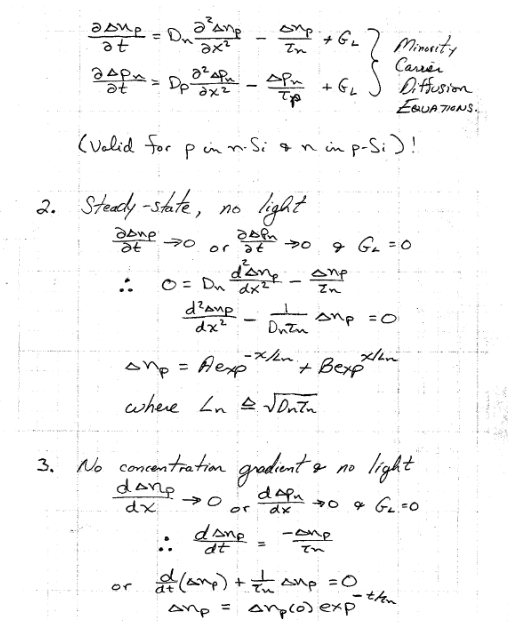 ∂Δnp/∂t = Dn ∂²Δnp/∂x² − Δnp/τn + GL } Minority
Carrier
∂Δpn/∂t = Dp ∂²Δpn/∂x² − Δpn/τp + GL } Diffusion
EQUATIONS.
(Valid for p in n-Si & n in p-Si)!
2. Steady-state, no light
∂Δnp/∂t → 0 or ∂Δpn/∂t → 0 & GL = 0
∴ 0 = Dn d²Δnp/dx² − Δnp/τn
d²Δnp/dx² − 1/Dnτn Δnp = 0
Δnp = A exp^-x/Ln + B exp^x/Ln
where Ln ≜ √Dnτn
3. No concentration gradient & no light
dΔnp/dx → 0 or dΔpn/dx → 0 & GL = 0
∴ dΔnp/dt = -Δnp/τn
or d/dt (Δnp) + 1/τn Δnp = 0
Δnp = Δnp(0) exp^-t/τn